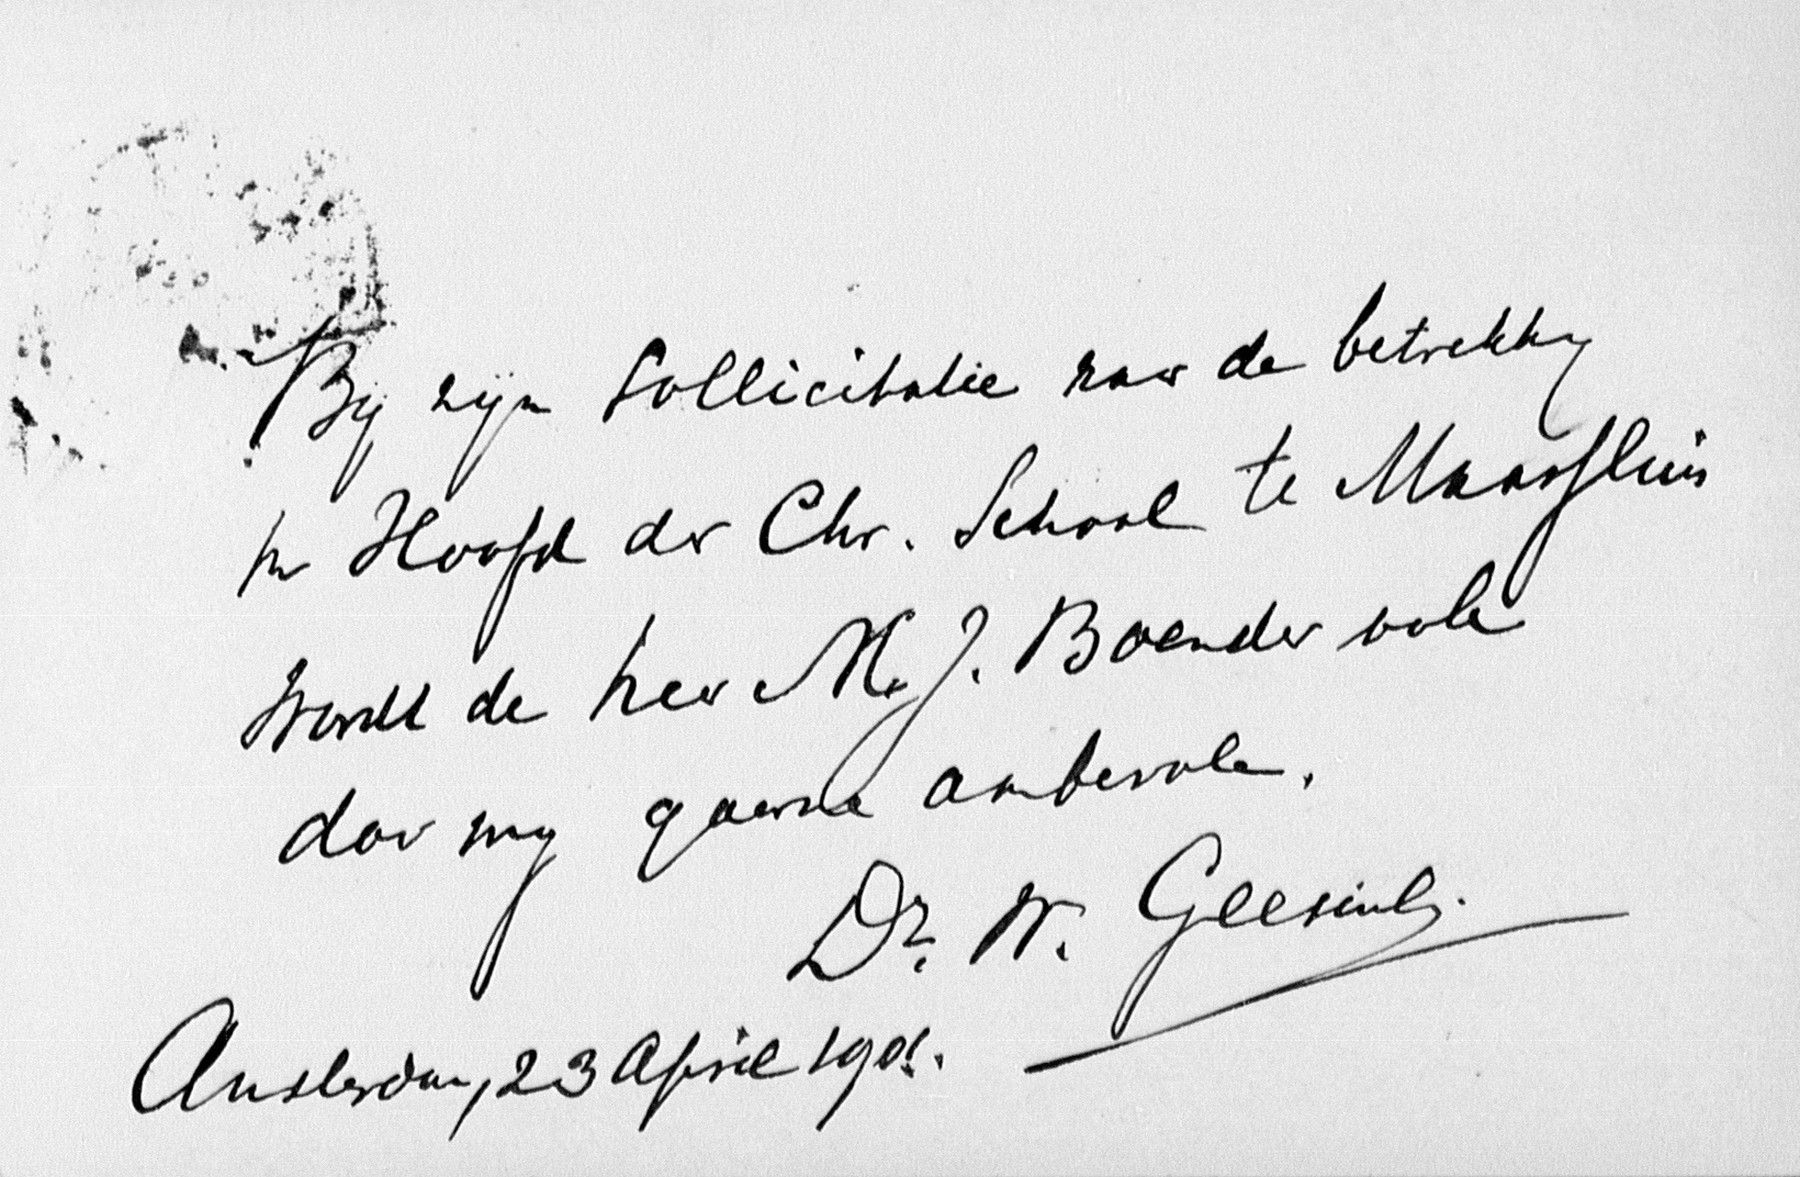 Bij zijn sollicitatie naar de betrekking
van Hoofd der Chr. School te Maassluis
wordt de heer M. J. Boender vole
door mij gaarne aanbevolen.
Dr. W. Geesink.
Amsterdam, 23 April 1901.